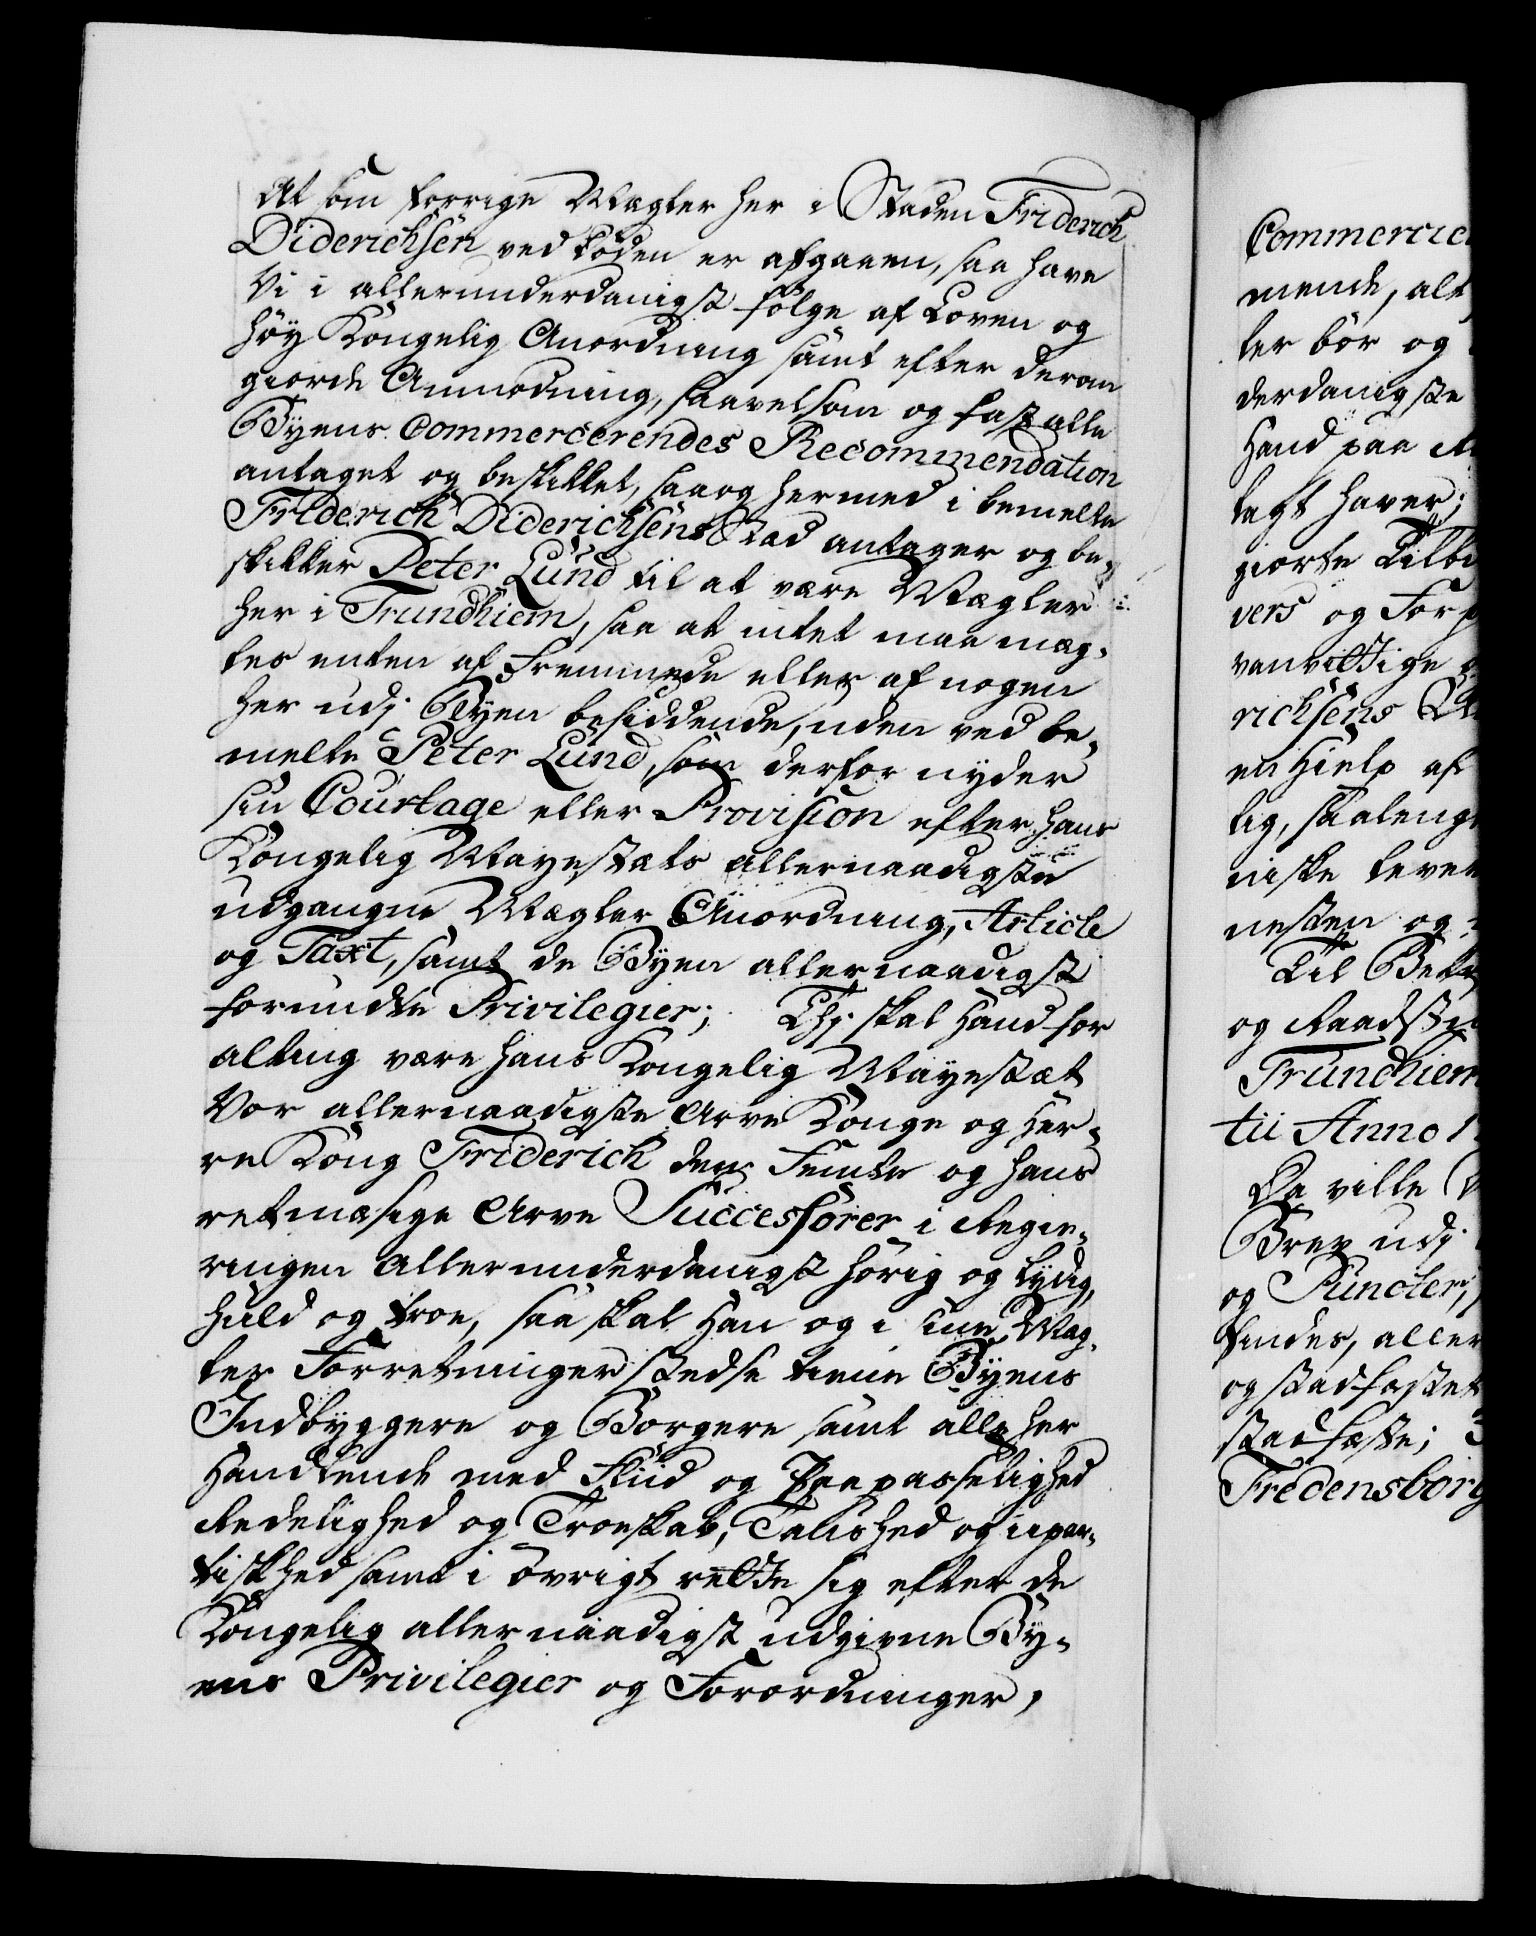 At som forrige Mægler her i Staden Friderich
Diderichsen ved Døden er afgaaen, saa have
Vi i allerunderdanigst følge af Loven og
høy Kongelig Anordning samt efter derom
giorde Anmodning, saavelsom og fast alle
Byens Commercerendes Recommendation
antaget og beskikket, saa og hermed i bemelte
Friderich Diderichsens Stad antager og be-
skikker Peter Lund til at være Mægler
her i Trundhiem, saa at intet maa mæg-
les enten af Fremmede eller af nogen
her udj Byen besiddende, uden ved be-
melte Peter Lund, som derfor nyder
sin Courtage eller Provision efter hans
Kongelig Mayestæts allernaadigste
udgangne Mægler Anordning, Article
og Taxt, samt de Byen allernaadigst
forundte Privilegier; Thj skal Hand for
alting være hans Kongelig Mayestæt
Vor allernaadigste Arve Konge og Her-
re Kong Friderich den Femte og hans
retmæsige Arve Successorer i Regie-
ringen allerunderdanigst hørig og lydig,
huld og troe, saa skal Han og i sine Mæg-
ler Forretninger stedse tiene Byens
Indbyggere og Borgere samt alle her
Handlende med Fliid og Paapasselighed
Redelighed og Troeskab, Taushed og upar-
tiskhed samt i øvrigt rette sig efter de
Kongelig allernaadigst udgivne By-
ens Privilegier og Forordninger,
Commercie
mende, alt
ler bør og
derdanigste
Hand paa
lagt haver;
giorte
vers og For
vanvittige
richsens
en Hielp af
lig, saalenge
niske leve
nesten og
Til Bek
og Raadst
Trundhiem
tii Anno 1
Da ville
Brev udj
og Puncter,
findes, aller
og stadfæstet
stadfæste;
Fredensborg